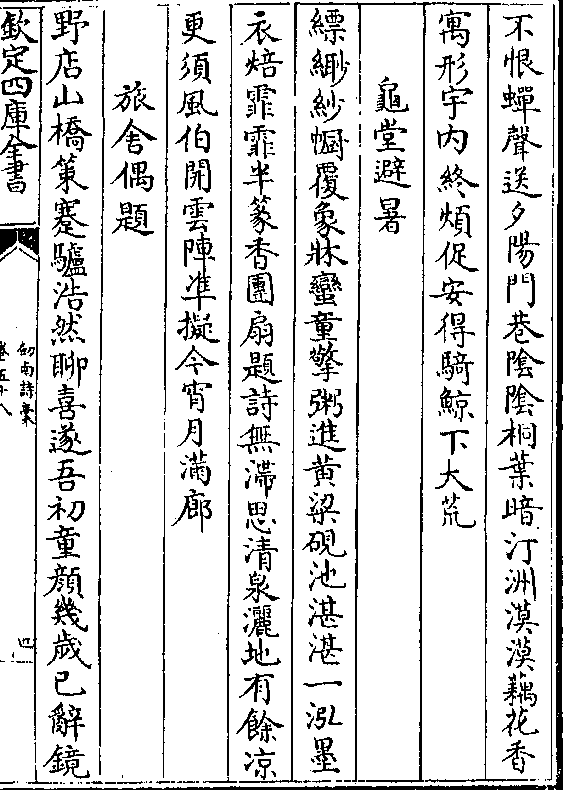 不恨蟬聲送夕陽門巷陰陰桐葉暗汀洲漠漠藕花香
寓形宇内終煩促安得騎鯨下大荒
龜堂避暑
縹緲紗㡡覆象牀蠻童擎粥進黄粱硯池湛湛一泓墨
衣焙霏霏半篆香團扇題詩無滯思清泉灑地有餘凉
更須風伯開雲陣凖擬今宵月滿廊
旅舎偶題
野店山橋策蹇驢浩然聊喜遂吾初童顔幾歲已辭鏡
欽定四庫全書
劍南詩稾
卷五十八
四